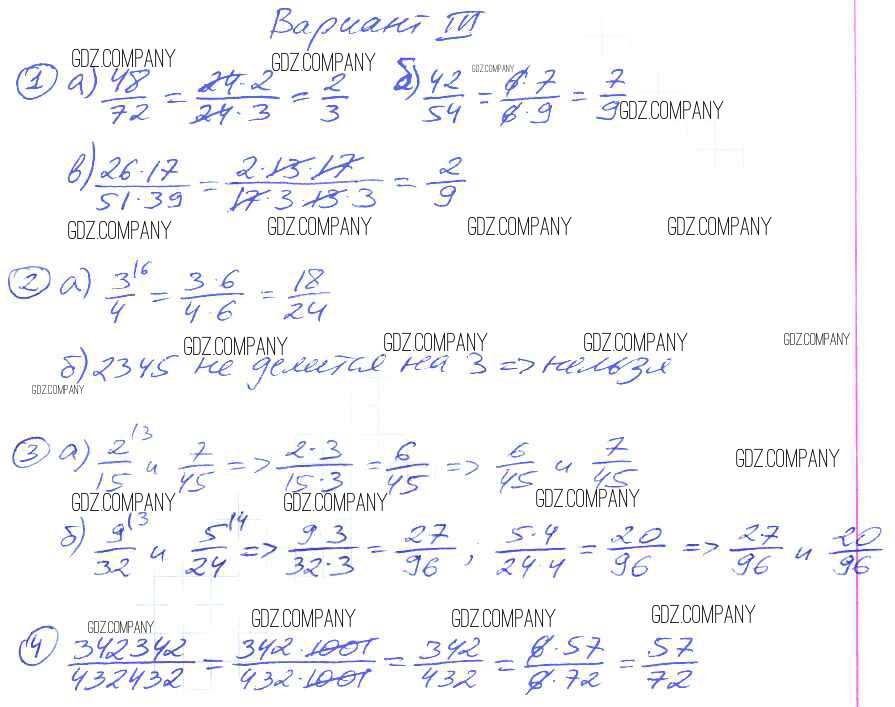 Вариант III
GDZ.COMPANY GDZ.COMPANY GDZ.COMPANY
① а) 48/72 = 24·2/24·3 = 2/3 б) 42/54 = 6·7/6·9 = 7/9
GDZ.COMPANY
в) 26·17/51·39 = 2·13·17/17·3·13·3 = 2/9
GDZ.COMPANY GDZ.COMPANY GDZ.COMPANY GDZ.COMPANY
② а) 3/4 \6 = 3·6/4·6 = 18/24
GDZ.COMPANY GDZ.COMPANY GDZ.COMPANY GDZ.COMPANY
б) 2345 не делится на 3 => нельзя
GDZ.COMPANY
③ а) 2/15 \3 и 7/45 => 2·3/15·3 = 6/45 => 6/45 и 7/45
GDZ.COMPANY
GDZ.COMPANY GDZ.COMPANY GDZ.COMPANY
б) 9/32 \3 и 5/24 \4 => 9 3/32·3 = 27/96 ; 5·4/24·4 = 20/96 => 27/96 и 20/96
GDZ.COMPANY GDZ.COMPANY GDZ.COMPANY GDZ.COMPANY
④ 342342/432432 = 342·1001/432·1001 = 342/432 = 6·57/6·72 = 57/72